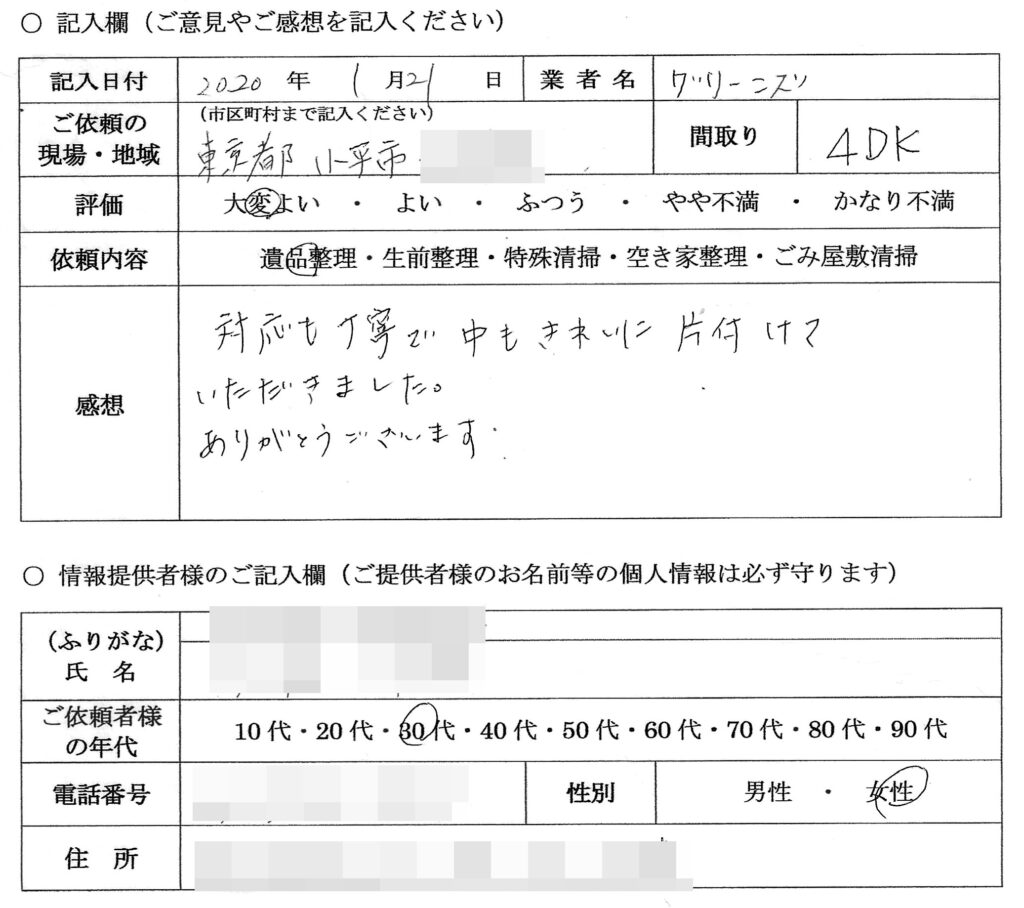 ○ 記入欄（ご意見やご感想を記入ください）
記入日付 2020 年 1 月 21 日 業者名 グリーニズツ
ご依頼の現場・地域 （市区町村まで記入ください） 間取り 4DK
東京都 小平市
評価 大変よい ・ よい ・ ふつう ・ やや不満 ・ かなり不満
依頼内容 遺品整理・生前整理・特殊清掃・空き家整理・ごみ屋敷清掃
感想
対応も丁寧で中もきれいに片付けて
いただきました。
ありがとうございます.
○ 情報提供者様のご記入欄（ご提供者様のお名前等の個人情報は必ず守ります）
（ふりがな）
氏 名
ご依頼者様の年代 10代・20代・30代・40代・50代・60代・70代・80代・90代
電話番号 性別 男性 ・ 女性
住 所